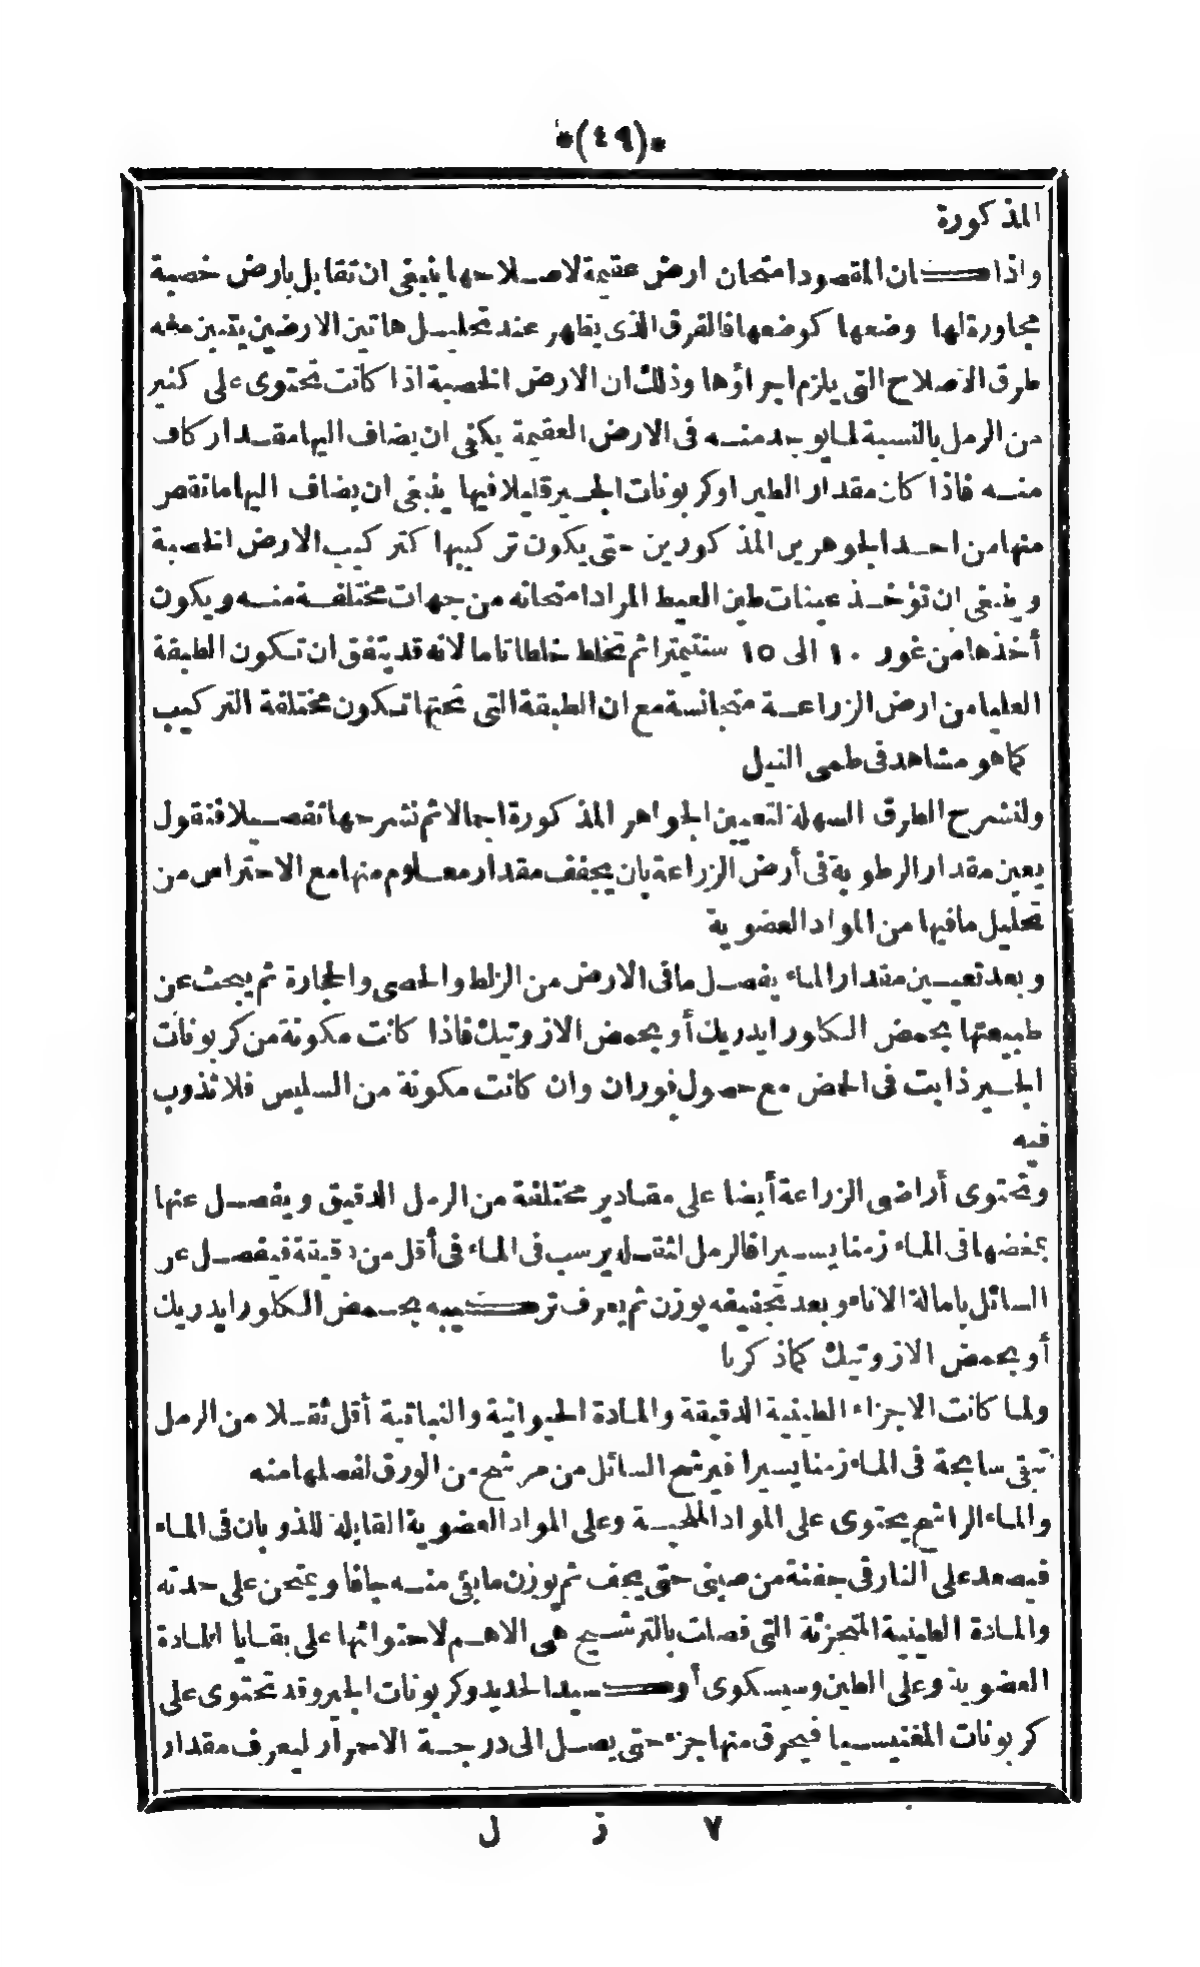 *(٤٩)*
المذكورة
واذا كان المقصود امتحان ارض عقيمة لاصلاحها ينبغى ان تقابل بارض خصبة
مجاورة لها وضعها كوضعها فالفرق الذى يظهر عند تحليل هاتين الارضين يتبين منه
طرق الاصلاح التى يلزم اجراؤها وذلك ان الارض الخصبة اذا كانت تحتوى على كثير
من الرمل بالنسبة لما يوجد منه فى الارض العقيمة يكفى ان يضاف اليها مقدار كاف
منه فاذا كان مقدار الطين او كربونات الجير قليلا فيها ينبغى ان يضاف اليها ما نقص
منها من احد الجوهرين المذكورين حتى يكون تركيبها كتركيب الارض الخصبة
وينبغى ان تؤخذ عينات طين الغيط المراد امتحانه من جهات مختلفة منه ويكون
أخذها من غور ١٠ الى ١٥ سنتيمترا ثم تخلط خلطا تاما لانه قد يتفق ان تكون الطبقة
العليا من ارض الزراعة متجانسة مع ان الطبقة التى تحتها تكون مختلفة التركيب
كما هو مشاهد فى طمى النيل
ولنشرح الطرق السهلة لتعيين الجواهر المذكورة اجمالا ثم نشرحها تفصيلا فنقول
يعين مقدار الرطوبة فى أرض الزراعة بان يجفف مقدار معلوم منها مع الاحتراس من
تحليل ما فيها من المواد العضوية
وبعد تعيين مقدار الماء يفصل ما فى الارض من الزلط والحصى والحجارة ثم يبحث عن
طبيعتها بحمض الكلورايدريك أو بحمض الازوتيك فاذا كانت مكونة من كربونات
الجير ذابت فى الحمض مع حصول فوران وان كانت مكونة من السليس فلا تذوب
فيه
وتحتوى أراضى الزراعة أيضا على مقادير مختلفة من الرمل الدقيق ويفصل عنها
بخضها فى الماء زمنا يسيرا فالرمل لثقله يرسب فى الماء فى أقل من دقيقة فيفصل عن
السائل بامالة الاناء وبعد تجفيفه يوزن ثم يعرف تركيبه بحمض الكلورايدريك
أو بحمض الازوتيك كما ذكرنا
ولما كانت الاجزاء الطينية الدقيقة والمادة الحيوانية والنباتية أقل ثقلا من الرمل
تبقى سابحة فى الماء زمنا يسيرا فيرشح السائل من مرشح من الورق لفصلها منه
والماء الراشح يحتوى على المواد الملحية وعلى المواد العضوية القابلة للذوبان فى الماء
فيصعد على النار فى جفنة من صينى حتى يجف ثم يوزن ما بقى منه جافا ويمتحن على حدته
والمادة الطينية المتجزئة التى فصلت بالترشيح هى الاهم لاحتوائها على بقايا المادة
العضوية وعلى الطين وسيسكوى أوكسيد الحديد وكربونات الجير وقد تحتوى على
كربونات المغنيسيا فيحرق منها جزء حتى يصل الى درجة الاحمرار ليعرف مقدار
٧ ز ل